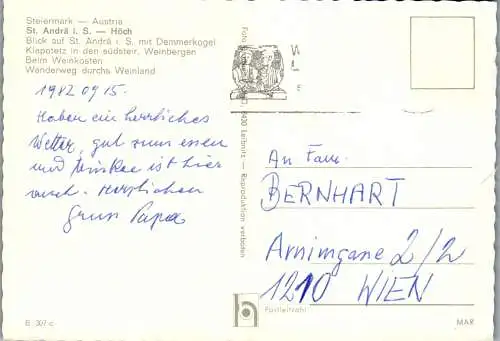 Steiermark — Austria
St. Andrä i. S. — Höch
Blick auf St. Andrä i. S. mit Demmerkogel
Klapotetz in den südsteir. Weinbergen
Beim Weinkosten
Wanderweg durchs Weinland
1982 09 15.
Haben ein herrliches
Wetter, gut zum essen
und trinken ist hier
auch. Herzlichen
Gruss Papa
8430 Leibnitz — Reproduktion verboten
An Fam.
BERNHART
Arnimgasse 2/2
1210 WIEN
Postleitzahl
MAR